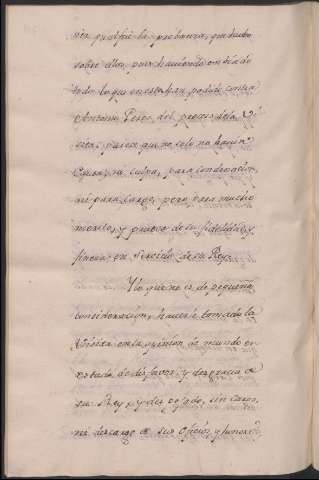 ver qual fue la probanza, que huvo
sobre ellos, pues haviendo oy dia de
todo lo que en estaban podido contra
Antonio Perez, del pecado de la Vi
sita, parece que no solo no havia
Causa, ni culpa, para condenacion,
ni para cargo, pero para mucho
merito, y premio de su fidelidad, y
fineza, en servicio de su Rey.
Y lo que no es de pequeña
consideracion, haverle tomado la
Visita en la opinion de mundo en
estado de disfavor, y desgracia de
su Rey, y despojado, sin cargo,
ni descargo de sus Oficios, y honores